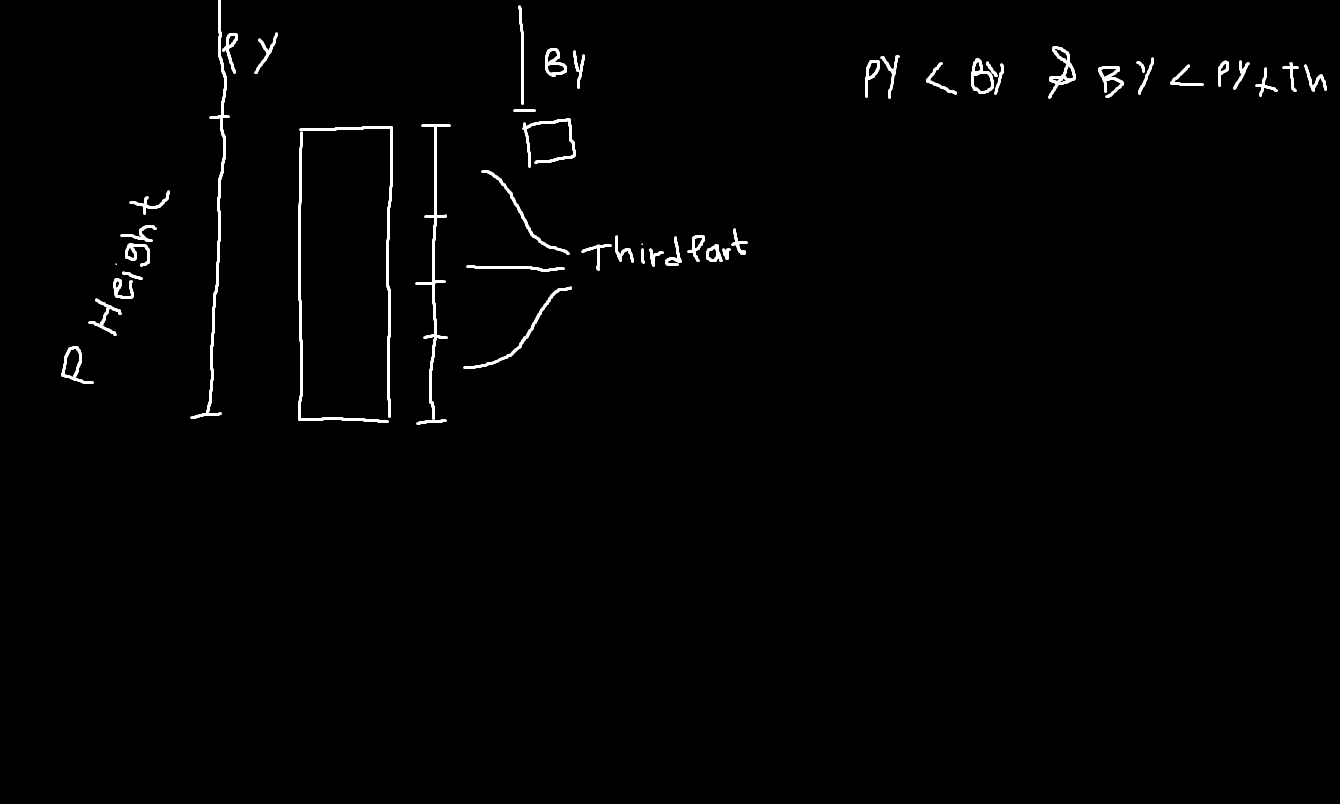 PY
BY
PY < BY & BY < PY + Th
P Height
ThirdPart